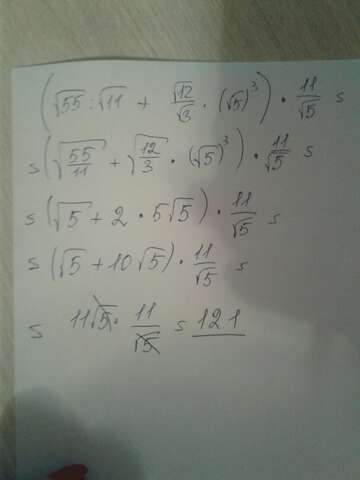 (√55 : √11 + √12/√3 · (√5)³) · 11/√5 =
= (√(55/11) + √(12/3) · (√5)³) · 11/√5 =
= (√5 + 2 · 5√5) · 11/√5 =
= (√5 + 10√5) · 11/√5 =
= 11√5 · 11/√5 = 121